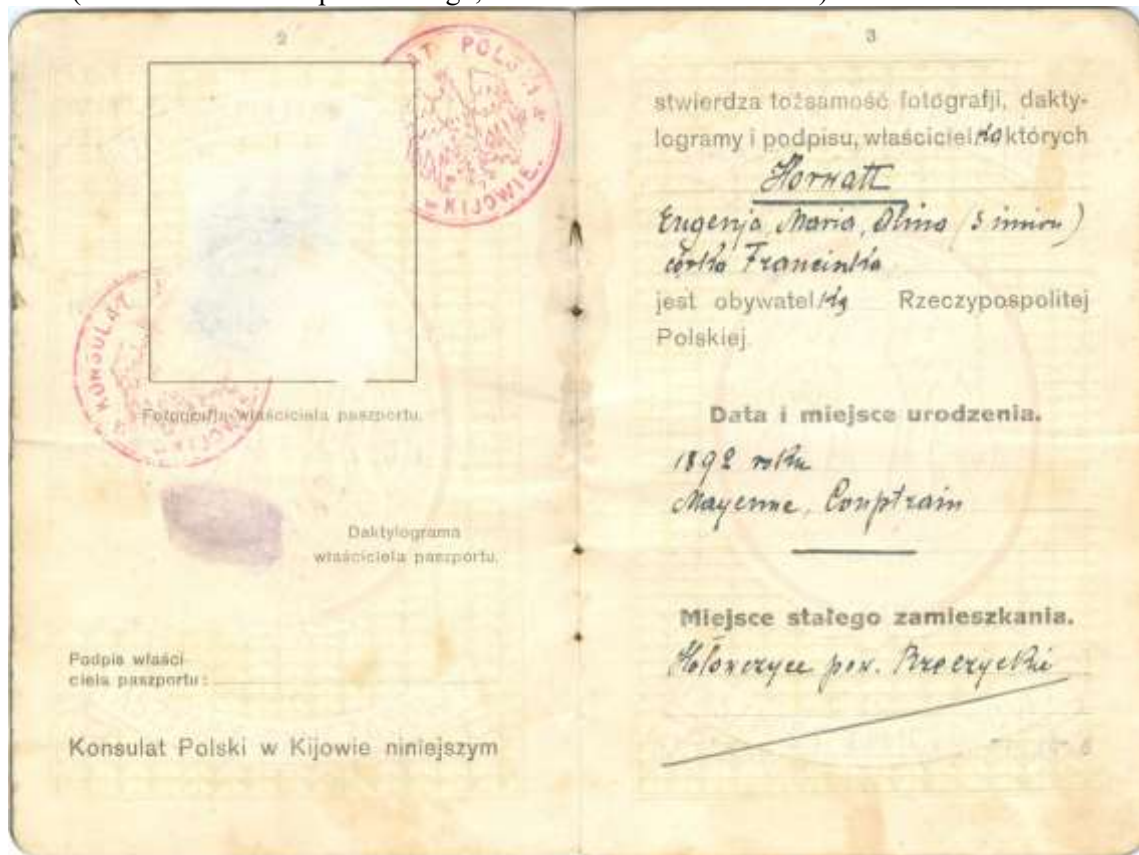 2
KONSULAT POLSKI
– KIJOWIE.
Fotografia właściciela paszportu.
Daktylograma
właściciela paszportu.
Podpis właści-
ciela paszportu:
Konsulat Polski w Kijowie niniejszym
3
stwierdza tożsamość fotografji, dakty-
logramy i podpisu, właścicielką których
Horwatt
Eugenja, Maria, Alina (3 imion)
córka Franciszka
jest obywatelką Rzeczypospolitej
Polskiej.
Data i miejsce urodzenia.
1892 roku
Mayenne, Couptrain
Miejsce stałego zamieszkania.
pow. Rzeczycki